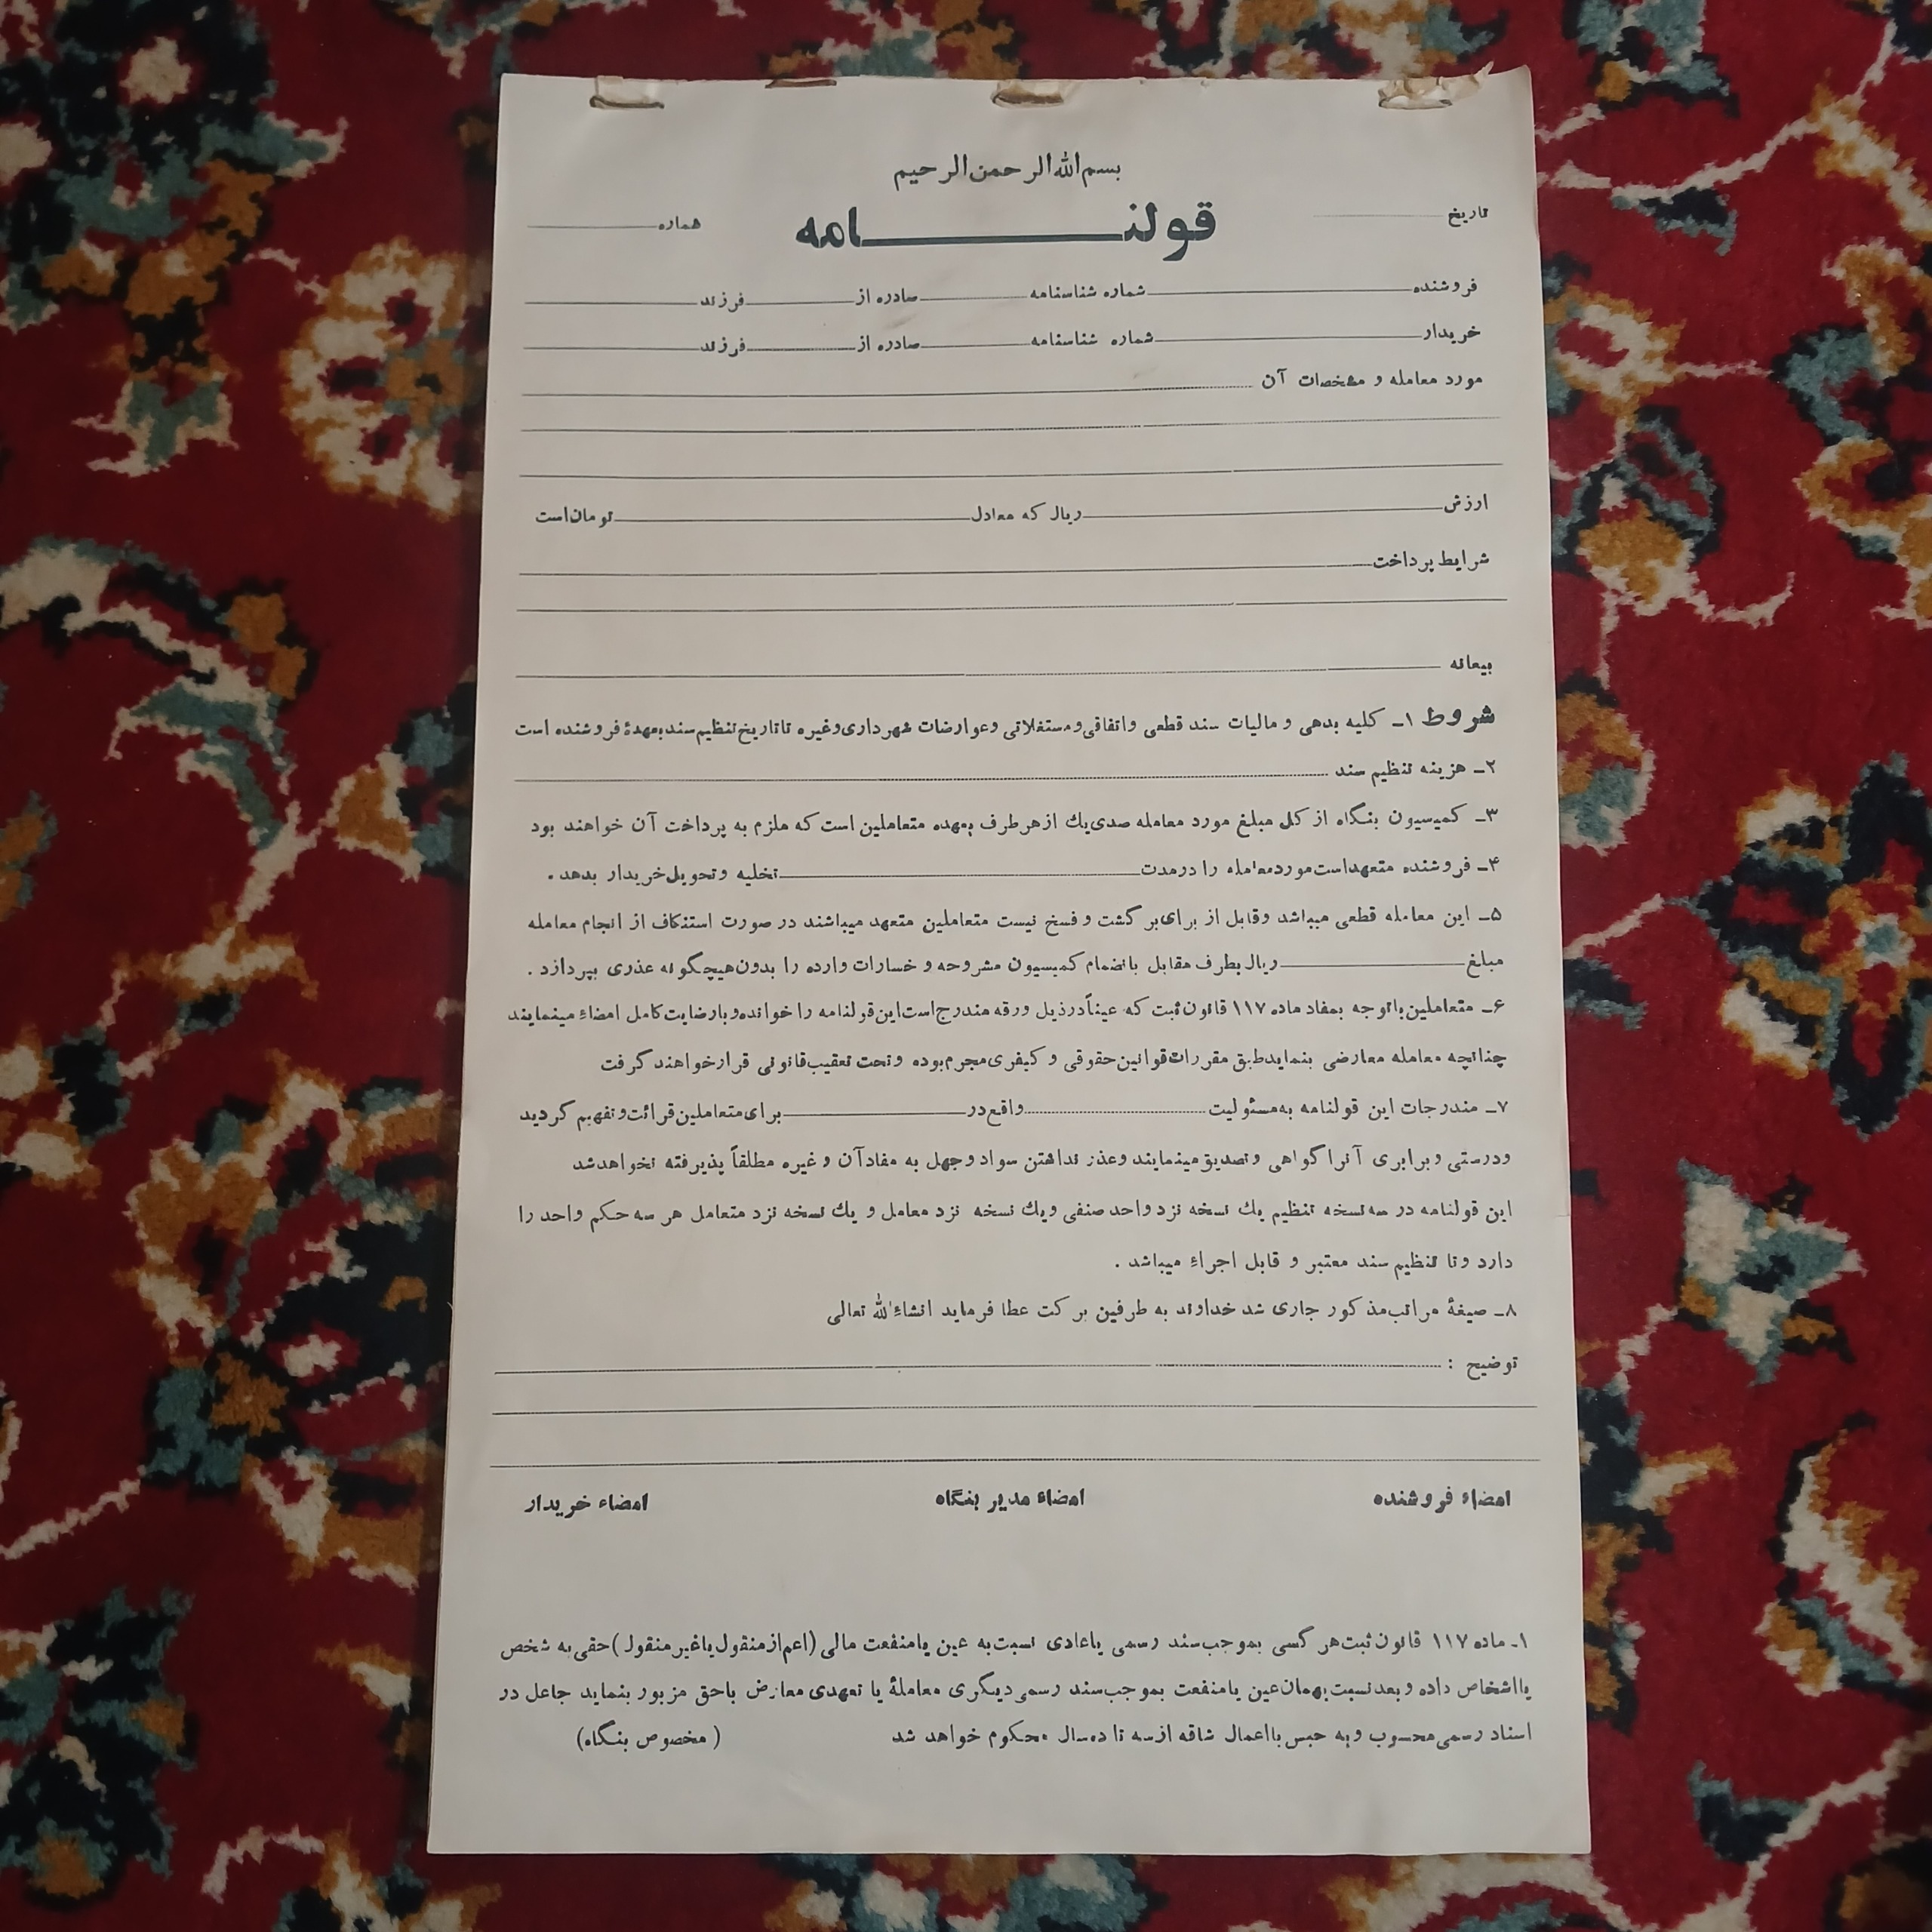 بسم‌الله‌الرحمن‌الرحیم
تاریخ قولنامه شماره
فروشنده شماره شناسنامه صادره از فرزند
خریدار شماره شناسنامه صادره از فرزند
مورد معامله و مشخصات آن
ارزش ریال که معادل تومان‌است
شرایط پرداخت
بیعانه
شروط ۱ـ کلیه بدهی و مالیات سند قطعی و اتفاقی و مستغلاتی و عوارضات شهرداری و غیره تا تاریخ تنظیم سند بعهدهٔ فروشنده است
۲ـ هزینه تنظیم سند
۳ـ کمیسیون بنگاه از کل مبلغ مورد معامله صدی یك از هر طرف بعهده متعاملین است که ملزم به پرداخت آن خواهند بود
۴ـ فروشنده متعهد است مورد معامله را در مدت تخلیه و تحویل خریدار بدهد .
۵ـ این معامله قطعی میباشد و قابل از برای برگشت و فسخ نیست متعاملین متعهد میباشند در صورت استنکاف از انجام معامله
مبلغ ریال بطرف مقابل بانضمام کمیسیون مشروحه و خسارات وارده را بدون هیچگونه عذری بپردازد .
۶ـ متعاملین باتوجه بمفاد ماده ۱۱۷ قانون ثبت که عیناً در ذیل ورقه مندرج است این قولنامه را خوانده و بارضایت کامل امضاءِ مینمایند
چنانچه معامله معارضی بنماید طبق مقررات قوانین حقوقی و کیفری مجرم بوده و تحت تعقیب قانونی قرار خواهند گرفت
۷ـ مندرجات این قولنامه به مسئولیت واقع در برای متعاملین قرائت و تفهیم گردید
و درستی و برابری آنرا گواهی و تصدیق مینمایند و عذر نداشتن سواد و جهل به مفاد آن و غیره مطلقاً پذیرفته نخواهد شد
این قولنامه در سه نسخه تنظیم یك نسخه نزد واحد صنفی و یك نسخه نزد معامل و یك نسخه نزد متعامل هر سه حکم واحد را
دارد و تا تنظیم سند معتبر و قابل اجراءِ میباشد .
۸ـ صیغهٔ مراتب مذکور جاری شد خداوند به طرفین برکت عطا فرماید انشاءِالله تعالی
توضیح :
امضاء فروشنده امضاء مدیر بنگاه امضاء خریدار
۱ـ ماده ۱۱۷ قانون ثبت هر کسی بموجب سند رسمی یا عادی نسبت به عین یا منفعت مالی (اعم از منقول یا غیر منقول) حقی به شخص
یا اشخاص داده و بعد نسبت بهمان عین یا منفعت بموجب سند رسمی دیگری معاملهٔ یا تعهدی معارض باحق مزبور بنماید جاعل در
اسناد رسمی محسوب و به حبس با اعمال شاقه از سه تا ده سال محکوم خواهد شد (مخصوص بنگاه)